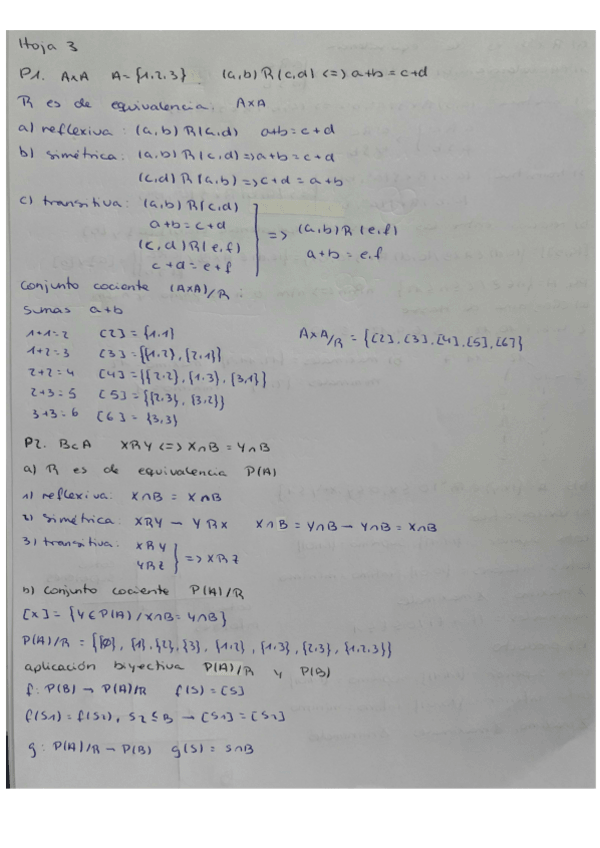 Hoja 3
P1. AxA A={1,2,3} (a,b)R(c,d) <=> a+b=c+d
R es de equivalencia: AxA
a) reflexiva: (a,b)R(c,d) a+b=c+d
b) simétrica: (a,b)R(c,d)=>a+b=c+d
(c,d)R(a,b)=>c+d=a+b
c) transitiva: (a,b)R(c,d)
a+b=c+d
(c,d)R(e,f)
c+d=e+f
=> (a,b)R(e,f)
a+b=e.f
conjunto cociente (AxA)/R:
sumas a+b
1+1=2 [2]={1,1}
1+2=3 [3]={{1,2},{2,1}}
2+2=4 [4]={{2,2},{1,3},{3,1}}
2+3=5 [5]={{2,3},{3,2}}
3+3=6 [6]={3,3}
AxA/R={[2],[3],[4],[5],[6]}
P2. B⊂A XRY<=>X∩B=Y∩B
a) R es de equivalencia P(A)
1) reflexiva: X∩B=X∩B
2) simétrica: XRY→YRX X∩B=Y∩B→Y∩B=X∩B
3) transitiva: XRY
YRZ
=> XRZ
b) conjunto cociente P(A)/R
[x]={Y∈P(A)/X∩B=Y∩B}
P(A)/R={{∅},{1},{2},{3},{1,2},{1,3},{2,3},{1,2,3}}
aplicación biyectiva P(A)/R y P(B)
f: P(B)→P(A)/R f(S)=[S]
f(S1)=f(S2), S2⊆B→[S1]=[S2]
g: P(A)/R→P(B) g(S)=S∩B